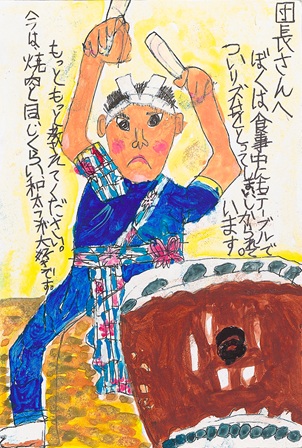 団長さんへ
ぼくは、食事中にもテーブルで
ついリズムをとってしまいしかられて
います。
もっともっと教えてください。
今は、焼肉と同じくらい和太コが大好きです。